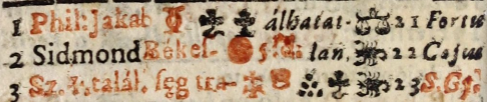 1 Phil: Jakab álhatat- 21 Fortu
2 Sidmond Békes- lan, 22 Cajus
3 Sz. ✝. talál. seg 23 S. Gy.